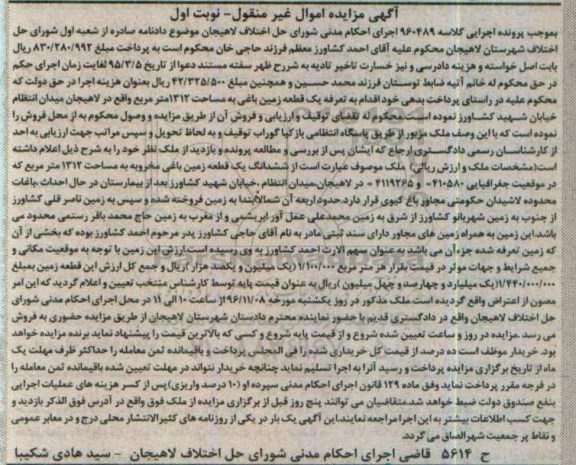 آگهی مزایده اموال غیر منقول- نوبت اول
بموجب پرونده اجرایی کلاسه ۹۶۰۴۸۹ اجرای احکام مدنی شورای حل اختلاف لاهیجان موضوع دادنامه صادره از شعبه اول شورای حل
اختلاف شهرستان لاهیجان محکوم علیه آقای احمد کشاورز معظم فرزند حاجی خان محکوم است به پرداخت مبلغ ۸۳۰/۲۸۰/۹۹۲ ریال
بابت اصل خواسته و هزینه دادرسی و نیز خسارت تاخیر تادیه به شرح ظهر سفته مستند دعوا از تاریخ ۹۵/۳/۵ لغایت زمان اجرای حکم
در حق محکوم له خانم آتیه ضابط توستان فرزند محمد حسین و همچنین مبلغ ۴۲/۳۲۵/۵۰۰ ریال بعنوان هزینه اجرا در حق دولت که
محکوم علیه در راستای پرداخت بدهی خود اقدام به تعرفه یک قطعه زمین باغی به مساحت ۱۳۱۲متر مربع واقع در لاهیجان میدان انتظام
خیابان شهید کشاورز نموده است.محکوم له تقضای توقیف و ارزیابی و فروش آن از طریق مزایده و وصول محکوم به از محل فروش را
نموده است که با این وصف ملک مزبور از طریق پاسگاه انتظامی بازکیا گوراب توقیف و به لحاظ تحویل و سپس مراتب جهت ارزیابی به احد
از کارشناسان رسمی دادگستری ارجاع که ایشان پس از بررسی و مطالعه پرونده و بازدید از ملک نظر خود را به شرح ذیل اعلام داشته
است(مشخصات ملک و ارزش ریالی) ملک موصوف عبارت است از ششدانگ یک قطعه زمین باغی مخروبه به مساحت ۱۳۱۲ متر مربع که
در موقعیت جغرافیایی ۰۴۱۰۵۸۰ و ۴۱۱۹۲۶۵ در لاهیجان،میدان انتظام ،خیابان شهید کشاورز بعد از بیمارستان در حال احداث ،باغات
محدوده لاشیدان حکومتی مجاور باغ کیوی قرار دارد.حدود اربعه آن شمالا ابتدا به زمین فروخته شده و سپس به زمین ناصر قلی کشاورز
از جنوب به زمین شهربانو کشاورز از شرق به زمین محمدعلی عمل آور ابریشمی و از مغرب به زمین حاج محمد باقر رستمی محدود می
باشد.این زمین به همراه زمین های مجاور دارای سند ثبتی مادر به نام آقای حاجی کشاورز پدر مرحوم احمد کشاورز بوده که بخشی از آن
که زمین تعرفه شده جزء آن می باشد به عنوان سهم الارث احمد کشاورز به وی رسیده است.ارزش این زمین با توجه به موقعیت مکانی و
جمیع شرایط و جهات موثر در قیمت بقرار هر متر مربع ۱/۱۰۰/۰۰۰ (یک میلیون و یکصد هزار )ریال و جمع کل ارزش این قطعه زمین بمبلغ
۱/۴۴۰/۰۰۰/۰۰۰(یک میلیارد و چهارصد و چهل میلیون )ریال به عنوان قیمت پایه توسط کارشناس منتخب تعیین و اعلام گردید که این امر
مصون از اعتراض واقع گردیده است.ملک مذکور در روز یکشنبه مورخه ۹۶/۱۱/۰۸از ساعت ۱۰ الی ۱۱ در محل اجرای احکام مدنی شورای
حل اختلاف لاهیجان واقع در دادگستری قدیم با حضور نماینده محترم دادستان شهرستان لاهیجان از طریق مزایده حضوری به فروش
می رسد .مزایده در روز و ساعت تعیین شده شروع و از قیمت پایه شروع و کسی که بالاترین قیمت را پیشنهاد نماید برنده مزایده خواهد
بود. خریدار موظف است ده درصد از قیمت کل خریداری شده را فی المجلس پرداخت و باقیمانده ثمن معامله را حداکثر ظرف مهلت یک
ماه از تاریخ برگزاری مزایده پرداخت و رسید آنرا به اجرا تسلیم نماید چنانچه خریدار نتواند در مهلت تعیین شده باقیمانده ثمن معامله را
در فرجه مقرر پرداخت نماید وفق ماده ۱۲۹ قانون اجرای احکام مدنی سپرده او (۱۰ درصد واریزی)پس از کسر هزینه های عملیات اجرایی
بنفع صندوق دولت ضبط خواهد شد.متقاضیان می توانند پنج روز قبل از برگزاری مزایده از ملک فوق واقع در آدرس فوق الذکر بازدید و
جهت کسب اطلاعات بیشتر به این اجرا مراجعه نمایند.این آگهی یک بار در یکی از روزنامه های کثیرالانتشار محلی درج و در معابر عمومی
و نقاط پر جمعیت شهر الصاق می گردد.
ح ۵۶۱۴ قاضی اجرای احکام مدنی شورای حل اختلاف لاهیجان - سید هادی شکیبا